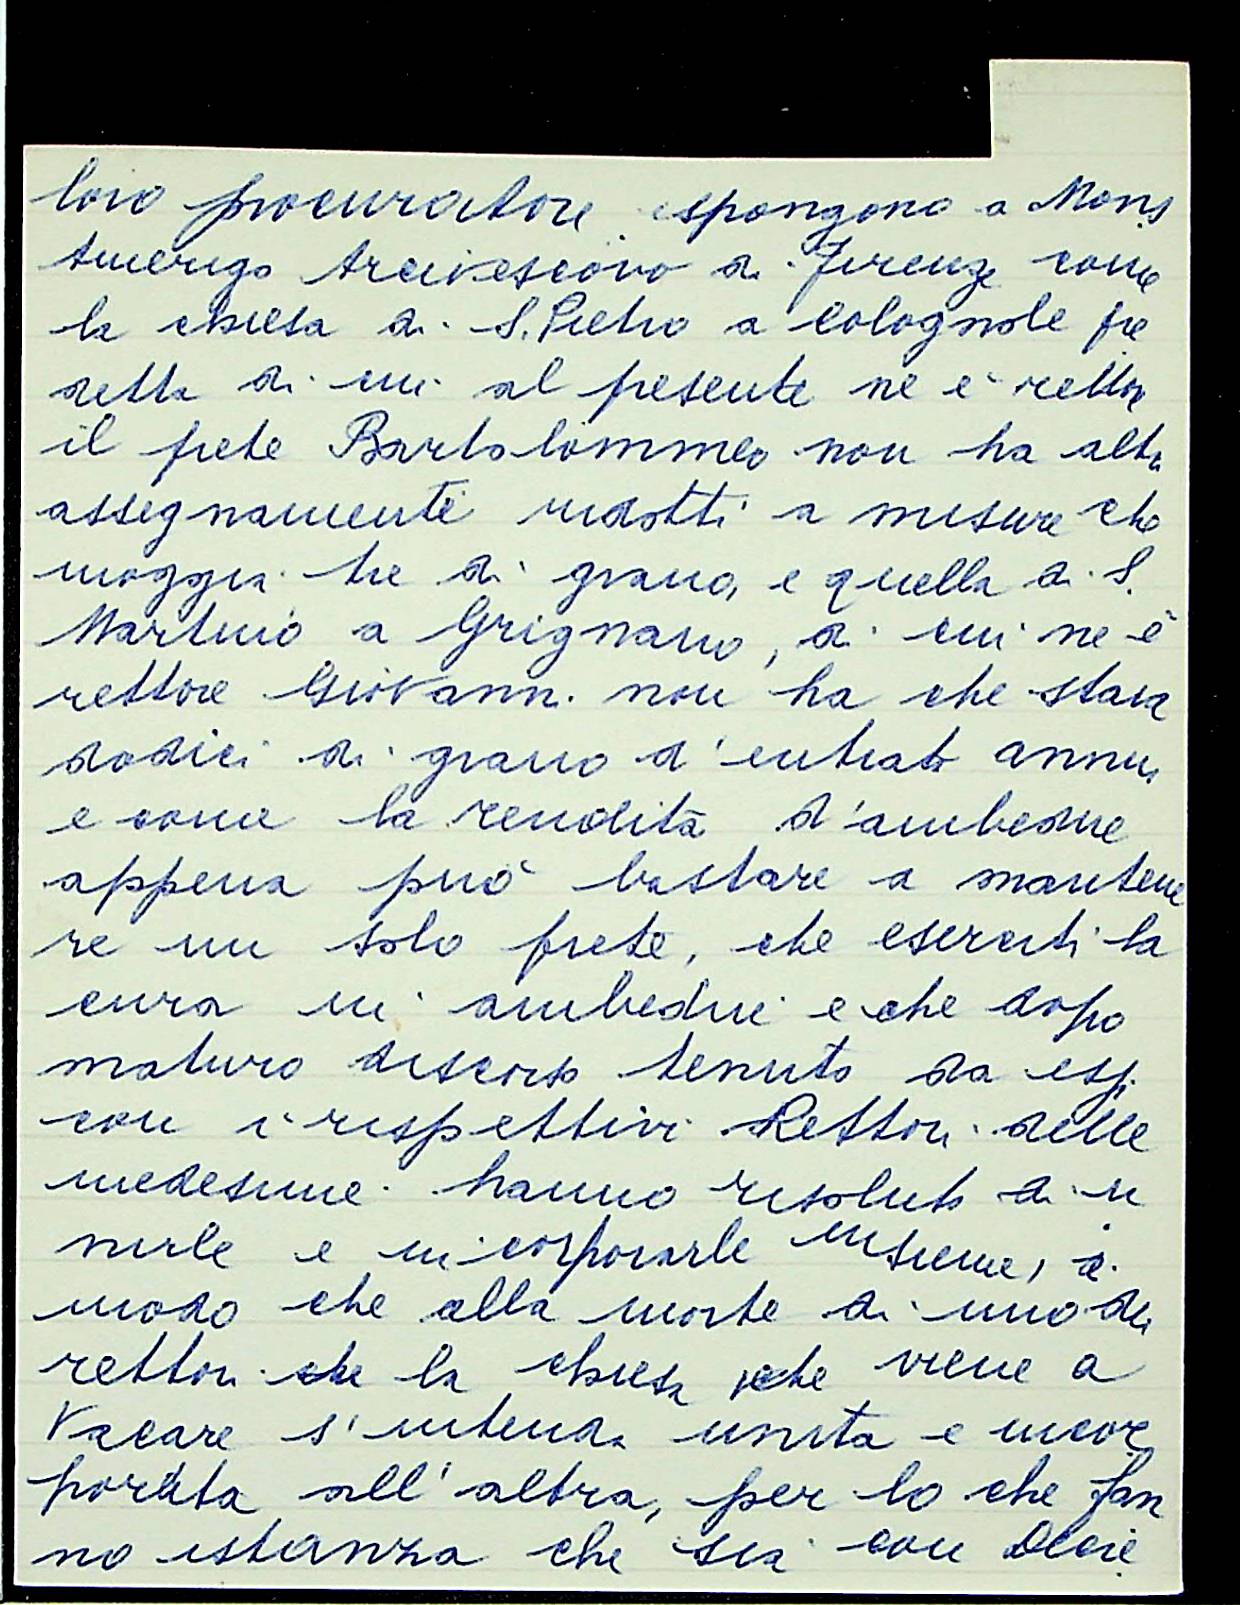 loro procuratore espongono a Mons
Amerigo Arcivescovo di Firenze come
la chiesa di S. Pietro a Colognole pre
detta di cui al presente ne è rettor
il prete Bartolommeo non ha altri
assegnamenti ridotti a misure che
moggia tre di grano, e quella di S.
Martino a Grignano, di cui ne è
rettore Giovanni non ha che staia
dodici di grano d'entrata annua
e come la rendita d'ambedue
appena può bastare a mantene
re un solo prete, che eserciti la
cura in ambedui e che dopo
maturo discorso tenuto da essi
con i rispettivi Rettori delle
medesime hanno risoluto di u
nirle e incorporarle insieme, in
modo che alla morte di uno dei
rettori che la chiesa che viene a
vacare s'intenda unita e incor
porata all'altra, per lo che fan
no istanza che sia con Decre